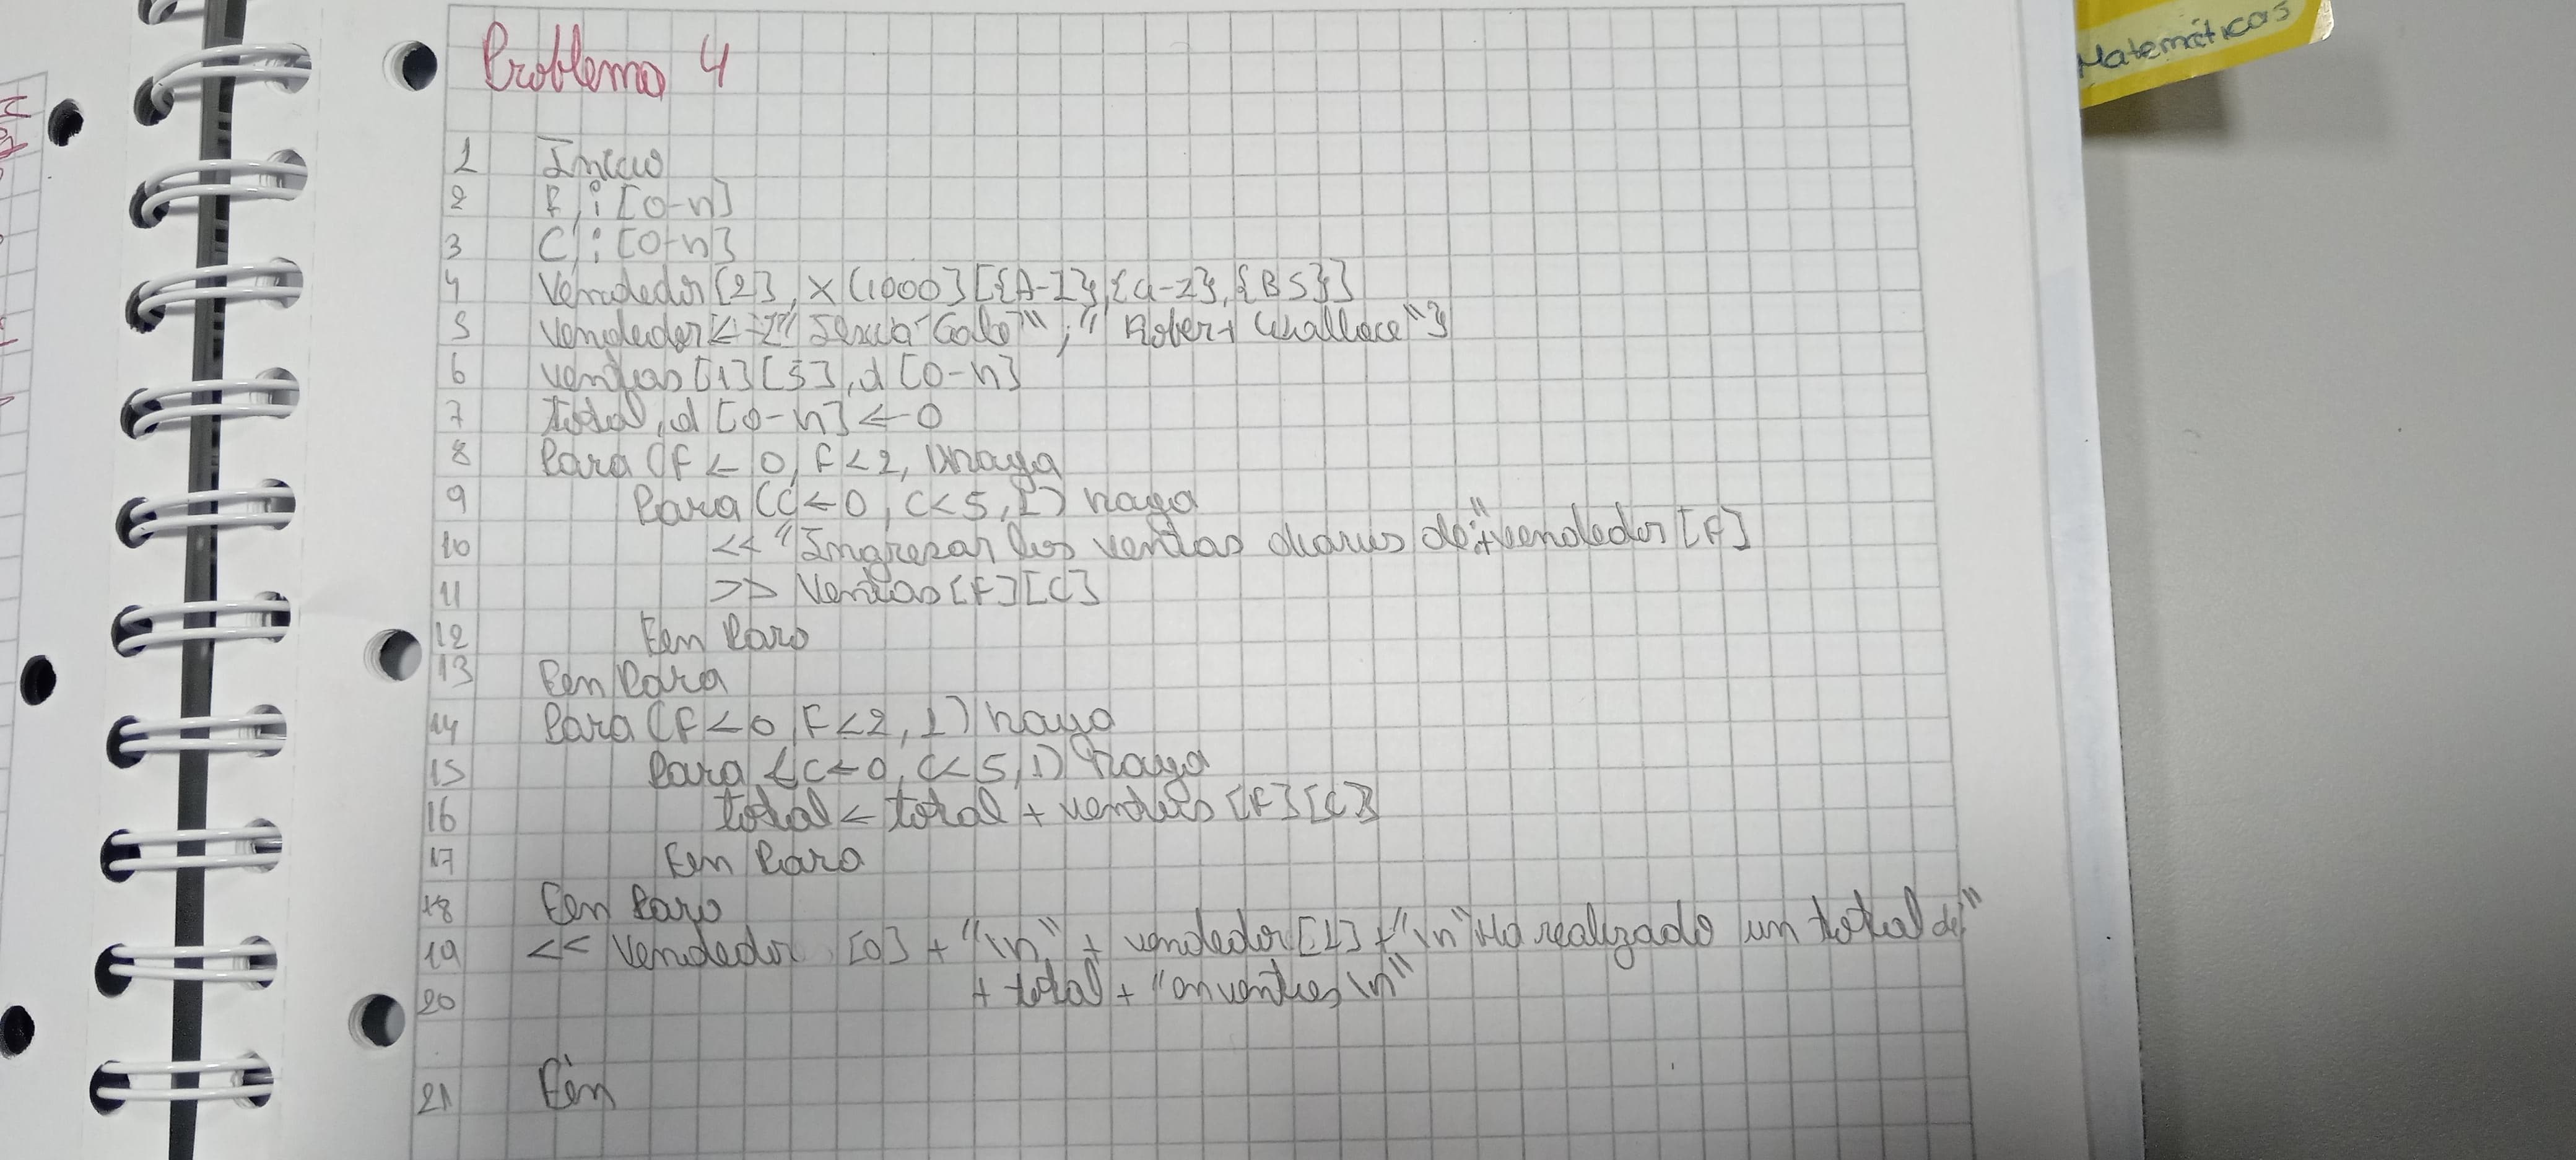 Matemáticas
Problema 4
1 Inicio
2 F, i [0-n]
3 C, i [0-n]
4 Vendedor [2], X(1000)[{A-Z},{a-z},{BS}]
5 Vendedor ← { " Galo" ; " Robert Wallace" }
6 ventas [1][5], d [0-n]
7 total, d [0-n] ← 0
8 Para (F ← 0, F<2, 1) haga
9 Para (C ← 0, C<5, 1) haga
10 << "Ingresar las ventas diarias de:" + vendedor [F]
11 >> Ventas [F][C]
12 Fin Para
13 Fin Para
14 Para (F ← 0, F<2, 1) haga
15 Para (C ← 0, C<5, 1) haga
16 total ← total + ventas [F][C]
17 Fin Para
18 Fin Para
19 << Vendedor [0] + "\n" + vendedor [1] + "\n" Ha realizado un total de"
20 + total + "en ventas \n"
21 Fin